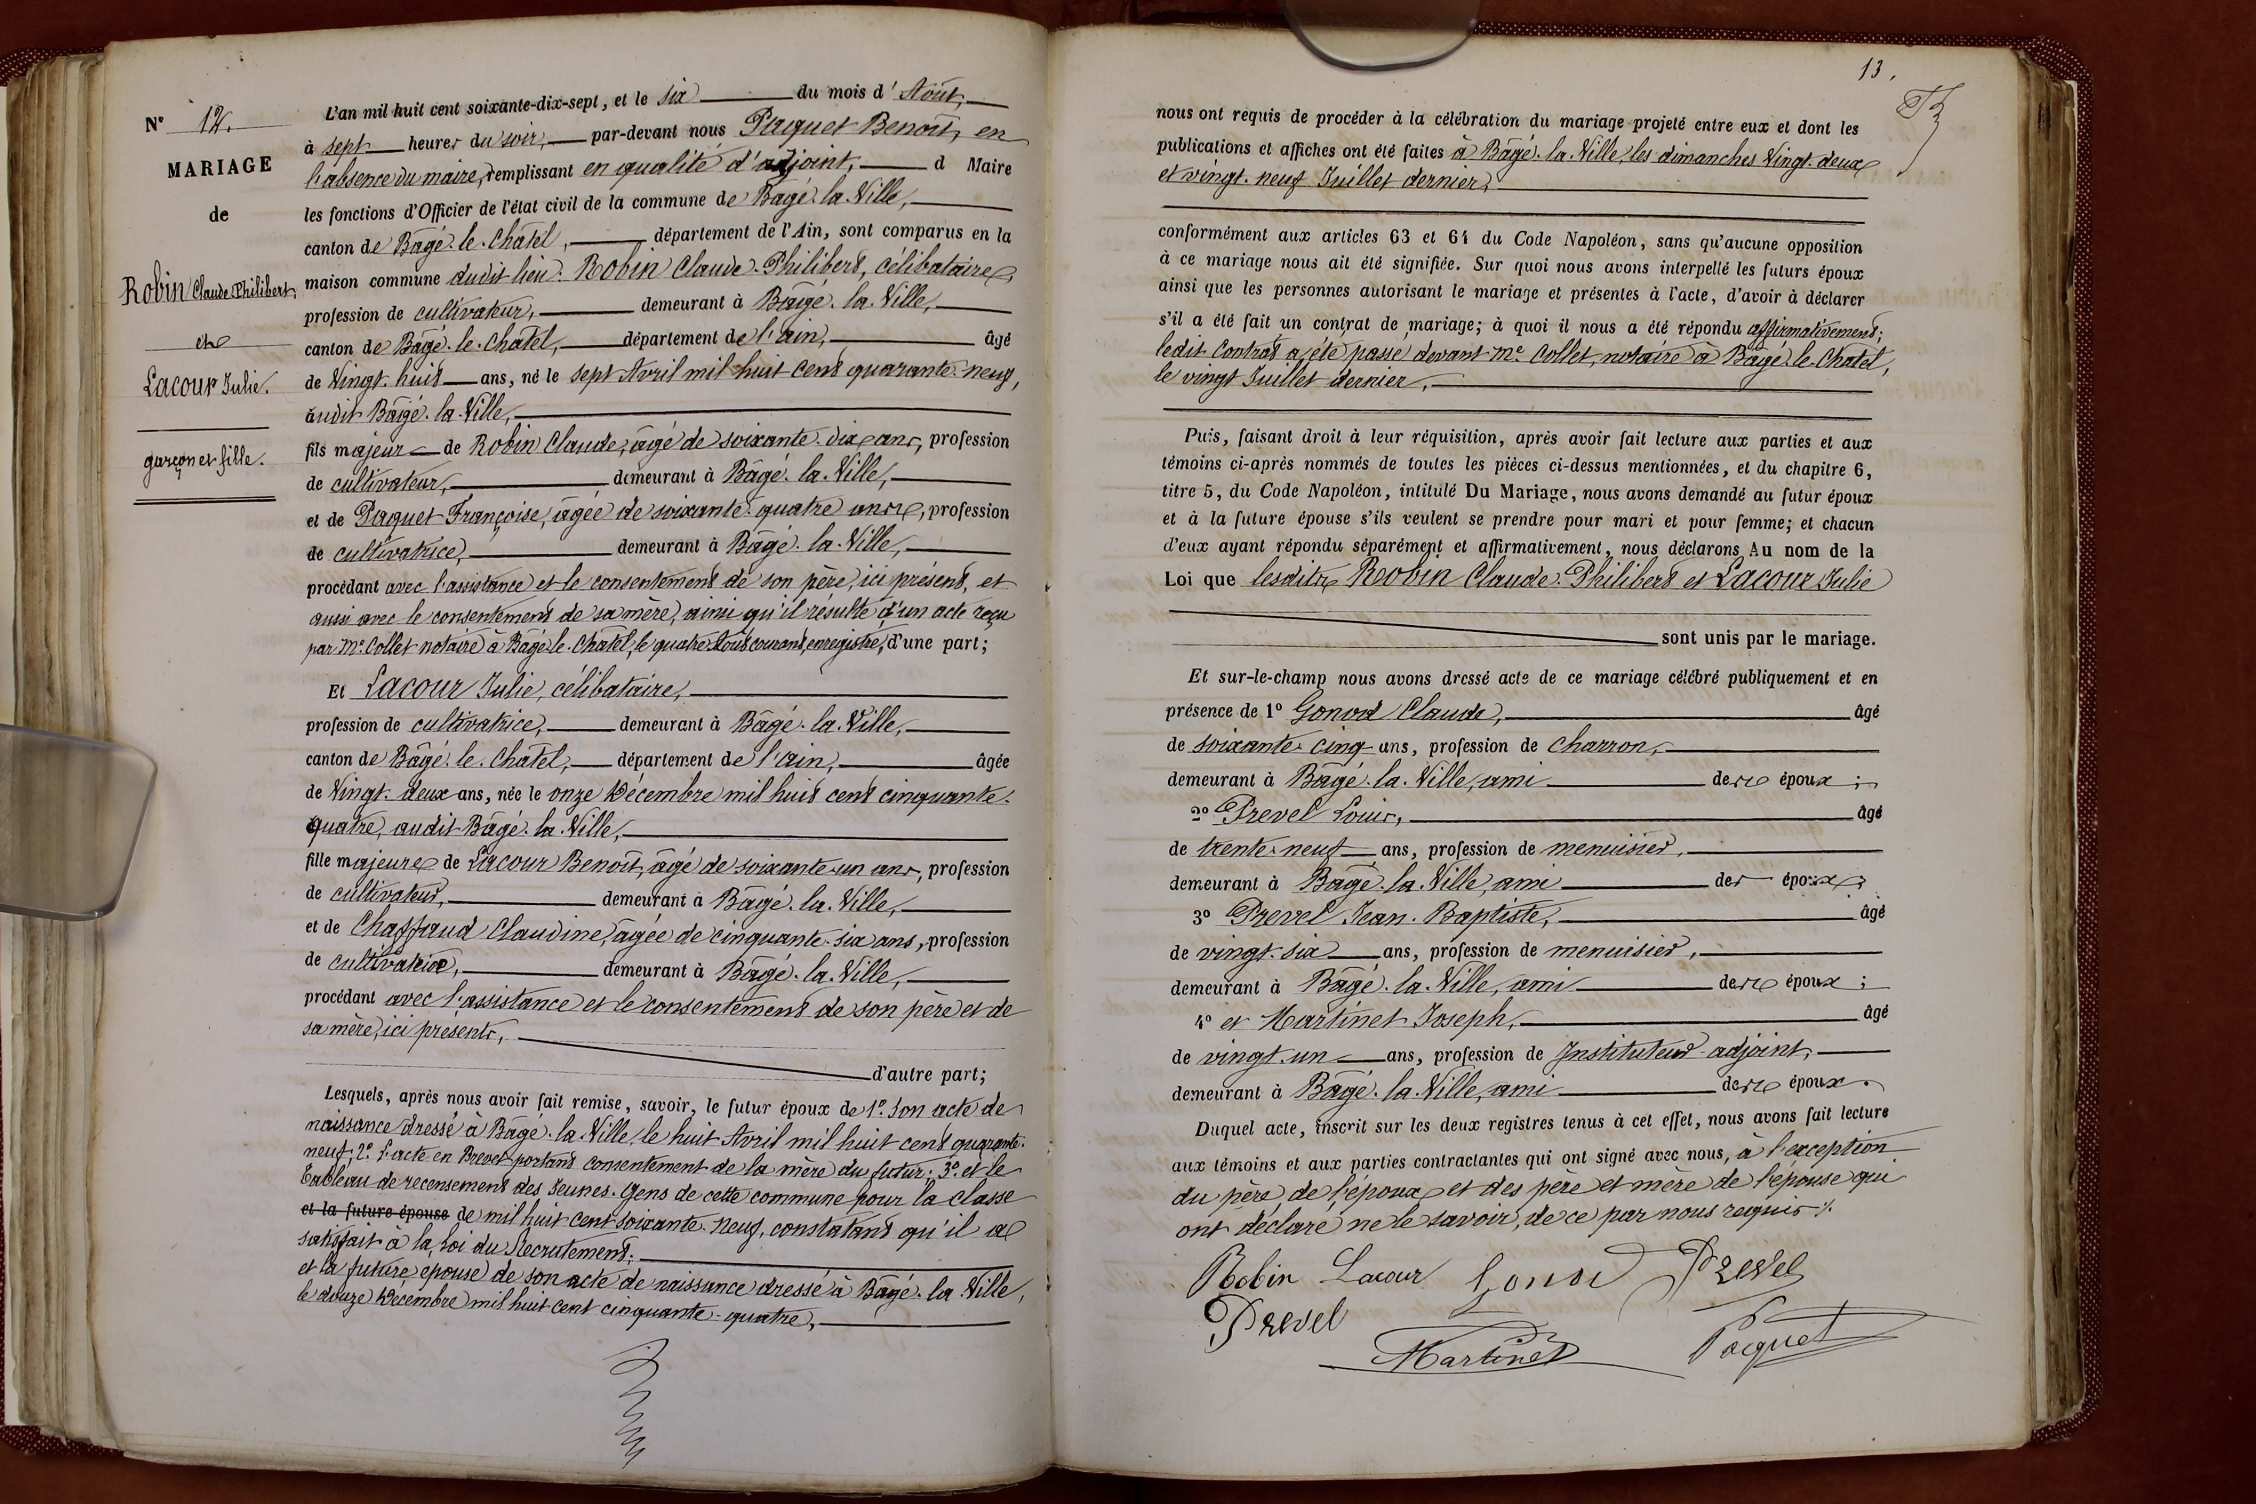 N° 12.
MARIAGE
de
Robin Claude Philibert,
et
Lacour Julie.
garçon et fille.
L'an mil huit cent soixante-dix-sept, et le six du mois d'Août,
à sept heures du soir, par-devant nous Paquet Benoit, en
l'absence du maire, remplissant en qualité d'adjoint, d Maire
les fonctions d'Officier de l'état civil de la commune de Bâgé-la-Ville,
canton de Bâgé-le-Châtel, département de l'Ain, sont comparus en la
maison commune dudit lieu: Robin Claude-Philibert, célibataire,
profession de cultivateur, demeurant à Bâgé-la-Ville,
canton de Bâgé-le-Châtel, département de l'ain, âgé
de Vingt-huit ans, né le sept Avril mil huit cent quarante-neuf,
audit Bâgé-la-Ville,
fils majeur de Robin Claude, âgé de soixante-dix ans, profession
de cultivateur, demeurant à Bâgé-la-Ville,
et de Paquet Françoise, âgée de soixante-quatre ans, profession
de cultivatrice, demeurant à Bâgé-la-Ville,
procédant avec l'assistance et le consentement de son père, ici présent, et
aussi avec le consentement de sa mère, ainsi qu'il résulte d'un acte reçu
par Me Collet notaire à Bâgé-le-Châtel, le quatre Août courant, enregistré, d'une part;
Et Lacour Julie, célibataire,
profession de cultivatrice, demeurant à Bâgé-la-Ville,
canton de Bâgé-le-Châtel, département de l'ain, âgée
de Vingt-deux ans, née le onze Décembre mil huit cent cinquante-
quatre, audit Bâgé-la-Ville,
fille majeure de Lacour Benoît, âgé de soixante-un ans, profession
de cultivateur, demeurant à Bâgé-la-Ville,
et de Chaffaud Claudine, âgée de cinquante-six ans, profession
de cultivatrice, demeurant à Bâgé-la-Ville,
procédant avec l'assistance et le consentement de son père et de
sa mère, ici présents,
d'autre part;
Lesquels, après nous avoir fait remise, savoir, le futur époux de 1° Son acte de
naissance dressé à Bâgé-la-Ville, le huit Avril mil huit cent quarante-
neuf; 2° L'acte en Brevet portant consentement de la mère du futur; 3° et le
Tableau de recensement des Jeunes-Gens de cette commune pour la classe
et la future épouse de mil huit cent soixante-neuf, constatant qu'il a
satisfait à la Loi du Recrutement;
et la future épouse de son acte de naissance dressé à Bâgé-la-Ville,
le douze Décembre mil huit cent cinquante-quatre,
13.
nous ont requis de procéder à la célébration du mariage projeté entre eux et dont les
publications et affiches ont été faites à Bâgé-la-Ville, les dimanches Vingt-deux
et vingt-neuf Juillet dernier,
conformément aux articles 63 et 64 du Code Napoléon, sans qu'aucune opposition
à ce mariage nous ait été signifiée. Sur quoi nous avons interpellé les futurs époux
ainsi que les personnes autorisant le mariage et présentes à l'acte, d'avoir à déclarer
s'il a été fait un contrat de mariage; à quoi il nous a été répondu affirmativement;
ledit Contrat a été passé devant Me Collet, notaire à Bâgé-le-Châtel,
le vingt Juillet dernier,
Puis, faisant droit à leur réquisition, après avoir fait lecture aux parties et aux
témoins ci-après nommés de toutes les pièces ci-dessus mentionnées, et du chapitre 6,
titre 5, du Code Napoléon, intitulé Du Mariage, nous avons demandé au futur époux
et à la future épouse s'ils veulent se prendre pour mari et pour femme; et chacun
d'eux ayant répondu séparément et affirmativement, nous déclarons Au nom de la
Loi que lesdits Robin Claude-Philibert et Lacour Julie
sont unis par le mariage.
Et sur-le-champ nous avons dressé acte de ce mariage célébré publiquement et en
présence de 1° Gonod Claude, âgé
de soixante-cinq ans, profession de charron,
demeurant à Bâgé-la-Ville, ami des époux;
2° Prevel Louis, âgé
de trente-neuf ans, profession de menuisier,
demeurant à Bâgé-la-Ville, ami des époux;
3° Prevel Jean-Baptiste, âgé
de vingt-six ans, profession de menuisier,
demeurant à Bâgé-la-Ville, ami des époux;
4° et Martinet Joseph, âgé
de vingt-un ans, profession de Instituteur-adjoint,
demeurant à Bâgé-la-Ville, ami des époux.
Duquel acte, inscrit sur les deux registres tenus à cet effet, nous avons fait lecture
aux témoins et aux parties contractantes qui ont signé avec nous, à l'exception
du père de l'époux et des père et mère de l'épouse qui
ont déclaré ne le savoir, de ce par nous requis ./.
Robin Lacour Gonod Prevel
Prevel
Martinet Paquet